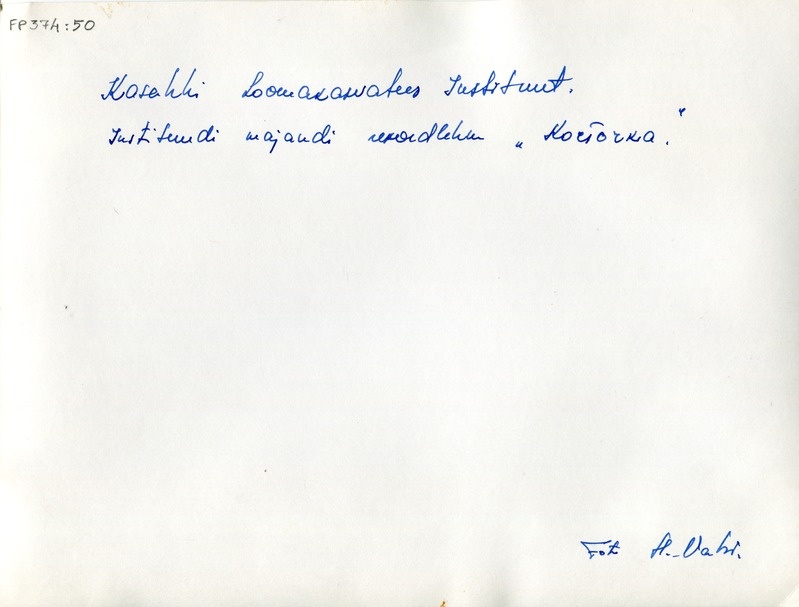 FP374:50
Kasahhi Loomakasvatus Instituut.
Instituudi majandi rekordlehm „
Fot H.